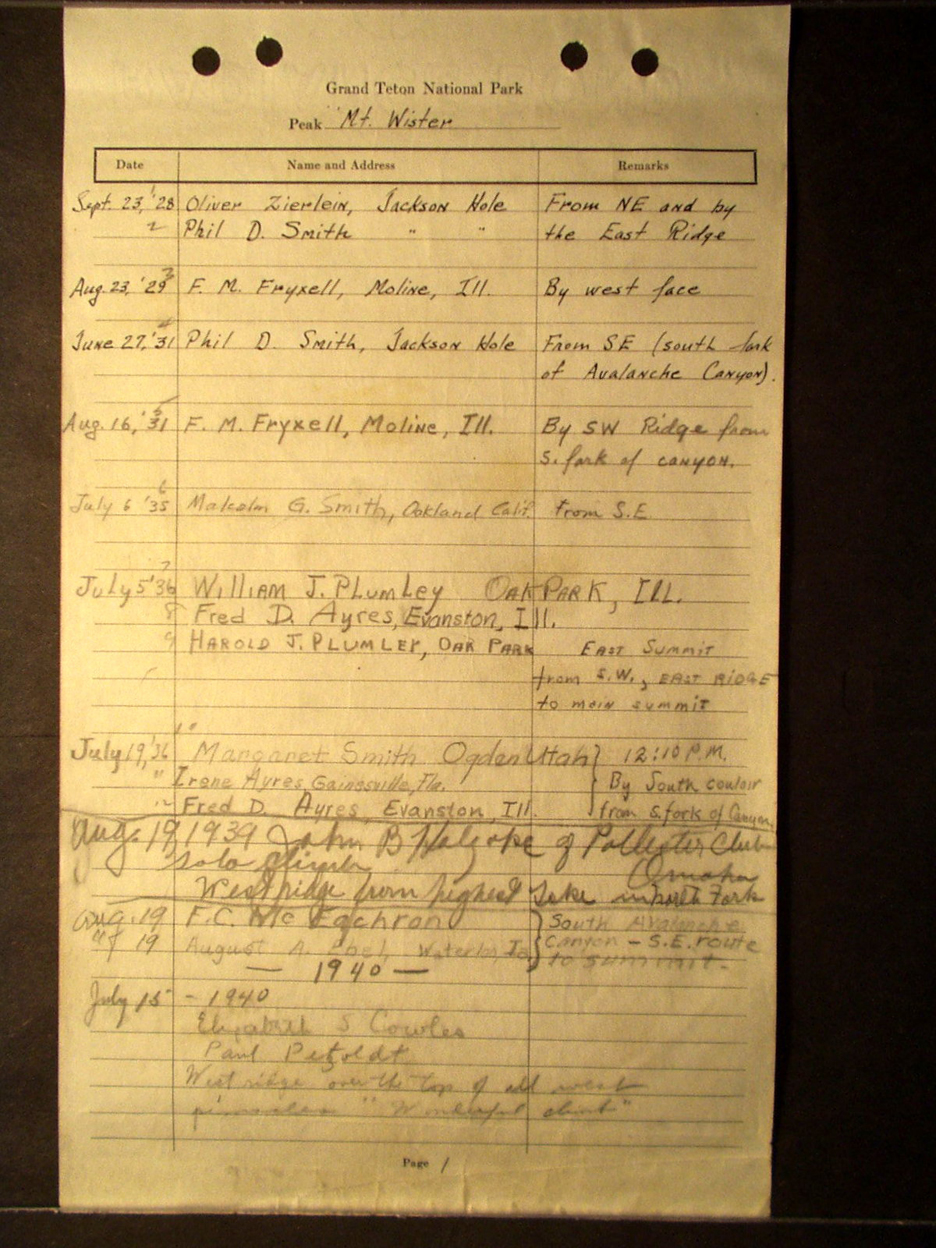 Grand Teton National Park
Peak Mt. Wister
Date Name and Address Remarks
Sept. 23, '28 Oliver Zierlein, Jackson Hole From NE and by
2 Phil D. Smith " " the East Ridge
3
Aug. 23, '29 F. M. Fryxell, Moline, Ill. By west face
4
June 27, '31 Phil D. Smith, Jackson Hole From SE (south fork
of Avalanche Canyon).
5
Aug. 16, '31 F. M. Fryxell, Moline, Ill. By SW Ridge from
S. fork of canyon.
6
July 6 '35 Malcolm G. Smith, Oakland Calif. From S.E.
7
July 5 '36 William J. Plumley Oak Park, Ill.
8 Fred D. Ayres, Evanston, Ill.
9 Harold J. Plumley, Oak Park East Summit
from S.W., East Ridge
to main summit
10
July 19, '36 Margaret Smith Ogden Utah } 12:10 P.M.
" Irene Ayres, Gainesville, Fla. By South couloir
12 Fred D. Ayres, Evanston, Ill. from S. fork of Canyon
Aug. 19, 1939 John B of Club
solo climb Omaha
West ridge from highest lake in North Fork
Aug. 19 F.C. McEachron South Avalanche
" 19 August A. Waterloo Ia Canyon - S.E. route
— 1940 — to summit.
July 15 - 1940
Elizabeth S Cowles
Paul Petzoldt
West ridge over the top of all west
pinnacles "Wonderful climb"
Page 1